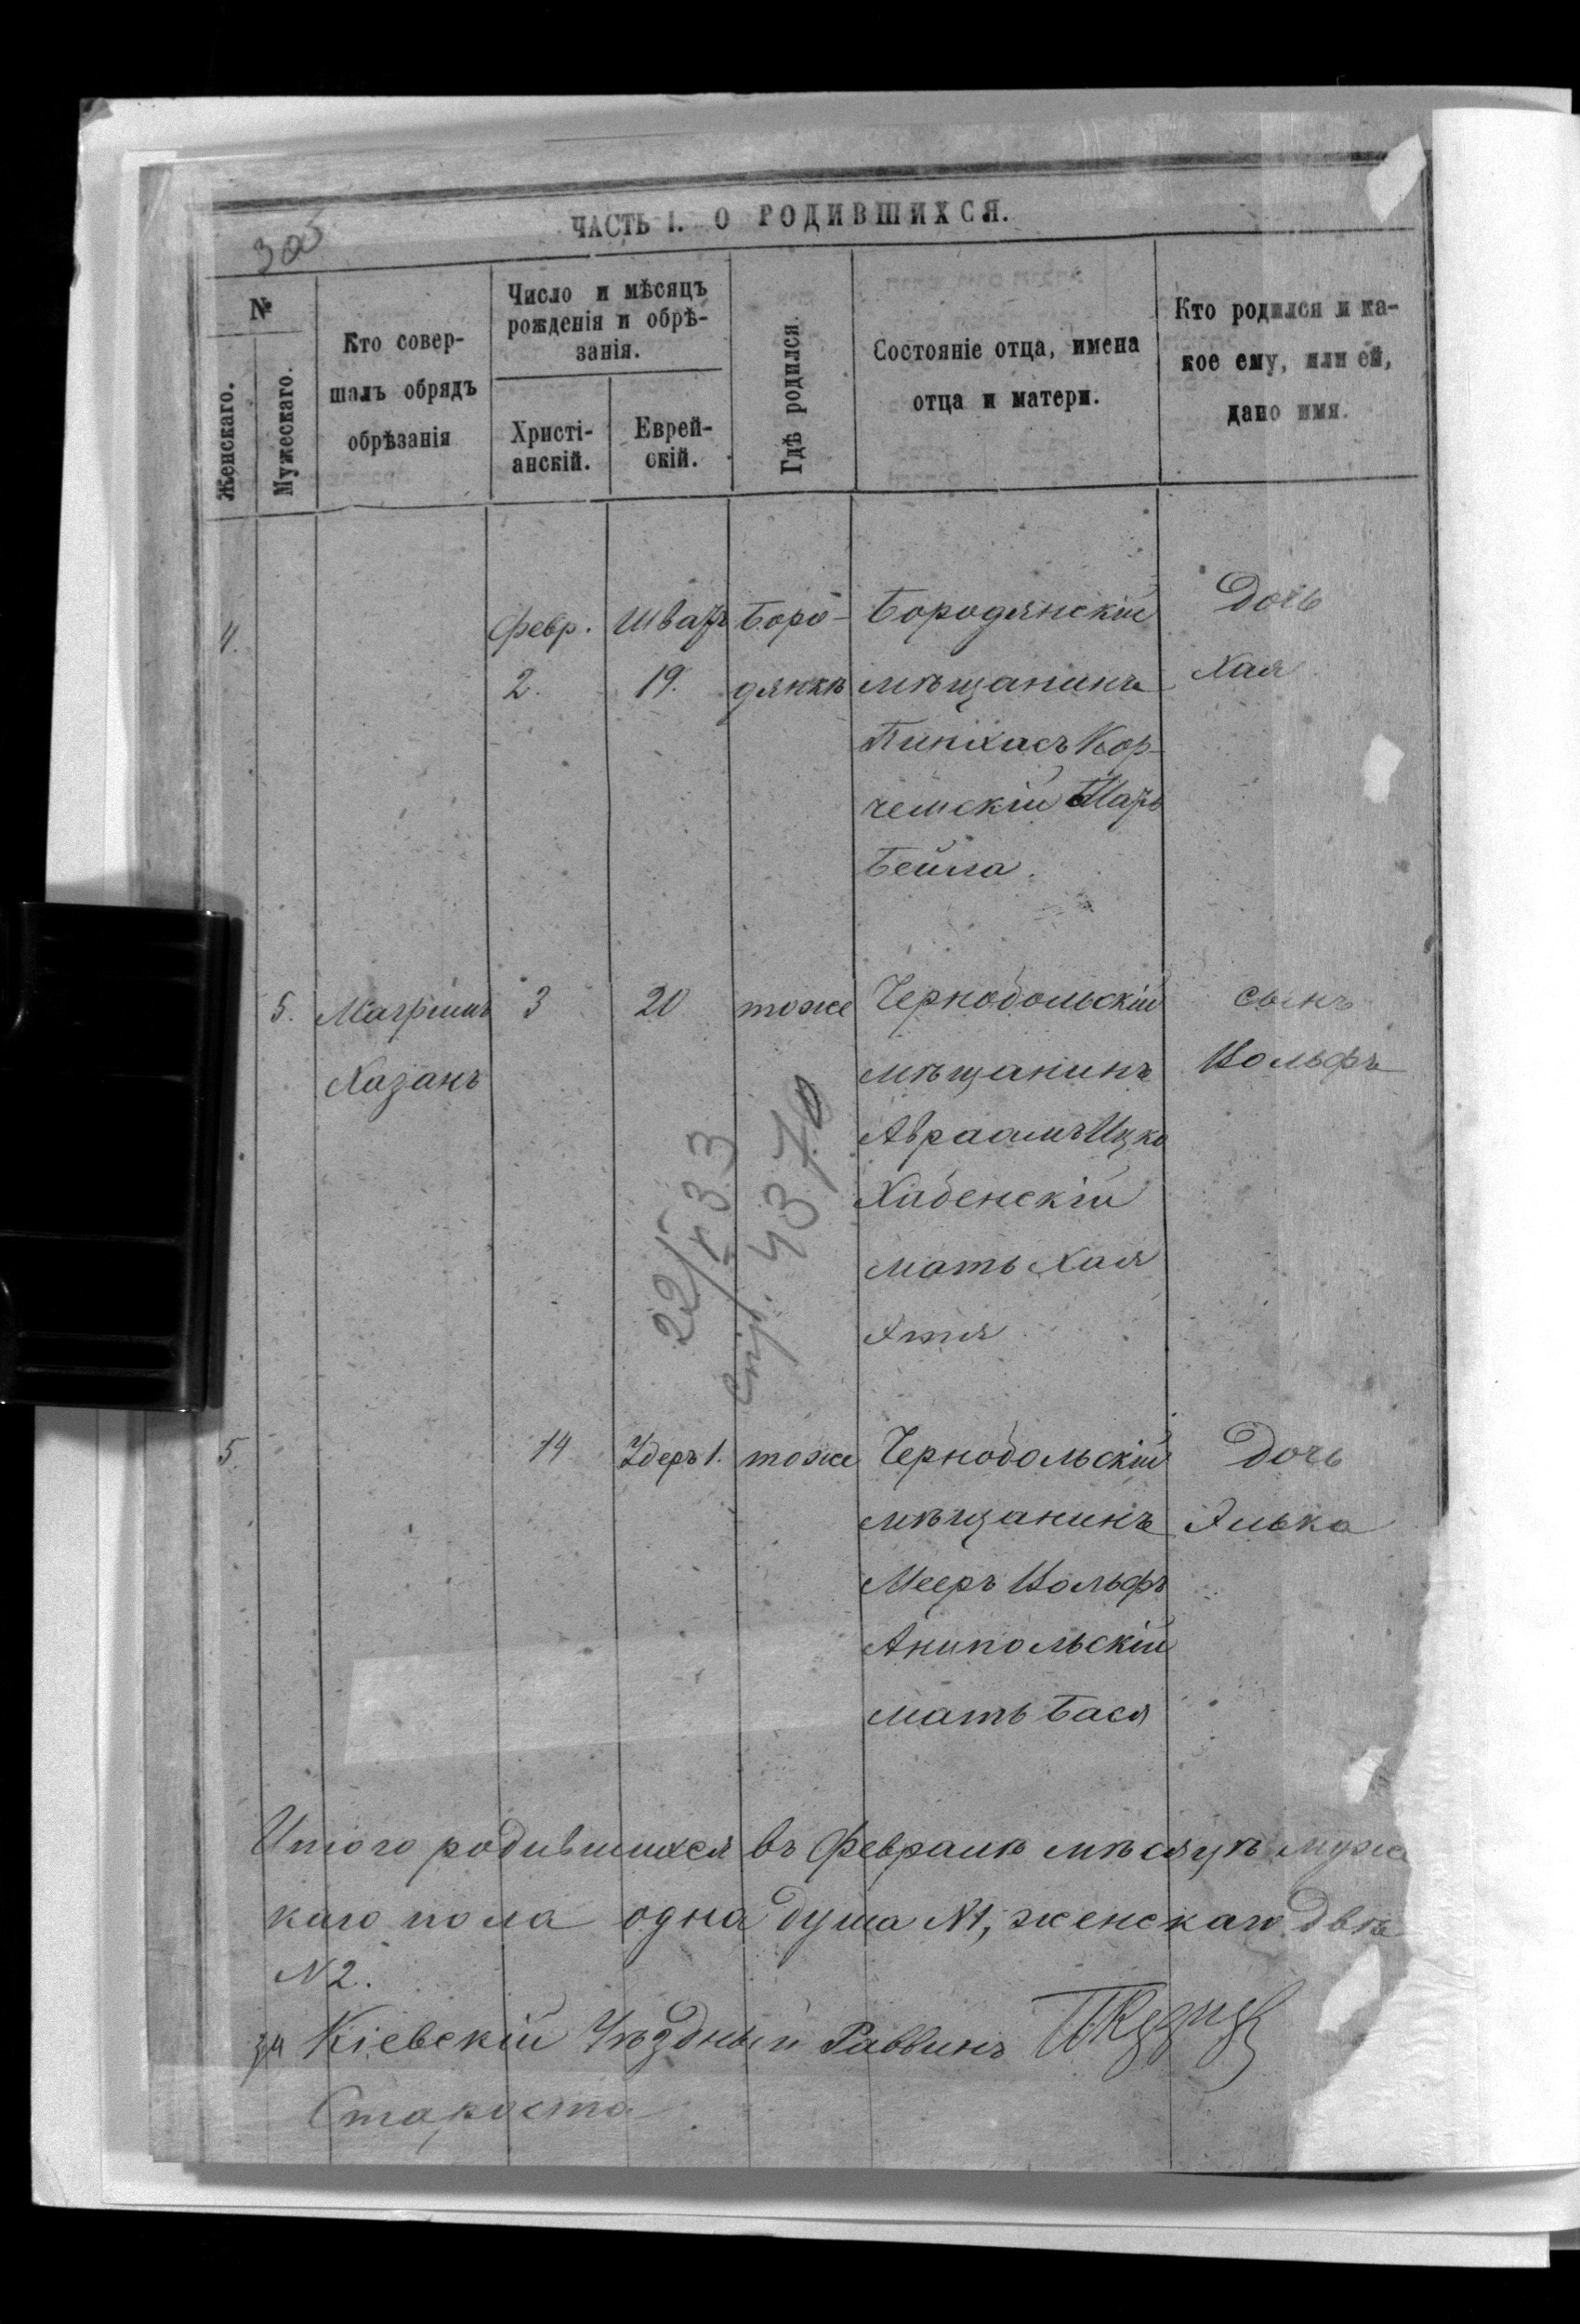 ЧАСТЬ I. О РОДИВШИХСЯ.
№
Женскаго.
Мужескаго.
Кто совер-
шалъ обрядъ
обрѣзанія
Число и мѣсяцъ
рожденія и обрѣ-
занія.
Христі-
анскій.
Еврей-
скій.
Гдѣ родился.
Состояніе отца, имена
отца и матери.
Кто родился и ка-
кое ему, или ей,
дано имя.
4.
Февр.
2.
Шватъ
19.
Боро-
дянкѣ
Бородянскій
мѣщанинъ
Пинхасъ Кор-
чемскій Мать
Бейла.
Дочь
Хая
5.
Хазанъ
3
20
тоже
Чернобольскій
мѣщанинъ
Авраамъ Ицко
Хабенскій
мать Хая
Этя
сынъ
Вольфъ
22/433
стр. 4370
5.
14
Удеръ 1.
тоже
Чернобольскій
мѣщанинъ
Мееръ Вольфъ
Анипольскій
мать Бася
Дочь
Элька
Итого родившихся въ Февралѣ мѣсяцѣ мужс
каго пола одна душа N1, женскаго двѣ
N 2.
за Кіевскій Уѣздный Раввинъ
Староста